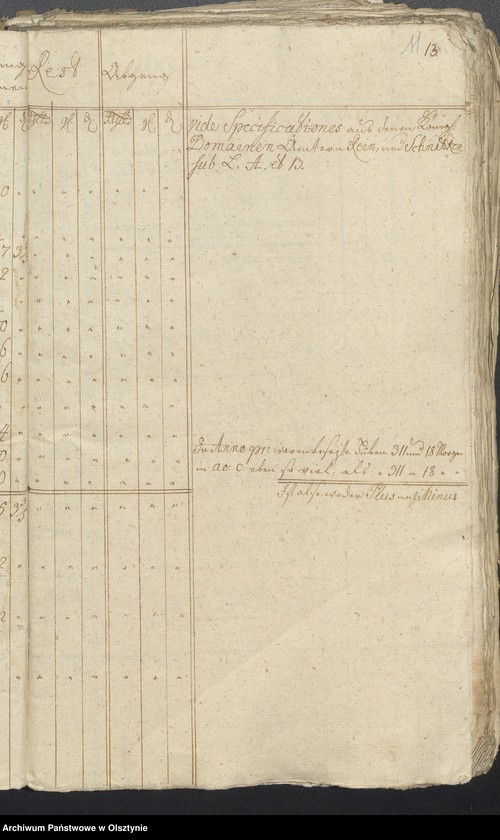 11 13.
Rest Abgang
vide Specificationes aus denen Königl.
Domainen Ämtern Rein, und Schnitken
sub L. A. et B.
0
7 3
2
0
6
6
4
0
0
5 3
2
2
In Anno pr: waren besezte Huben 311 und 18 Morgen
in ao: c. eben so viel, als " 311 " 18 " "
Ist also weder Plus noch Minus
Archiwum Państwowe w Olsztynie